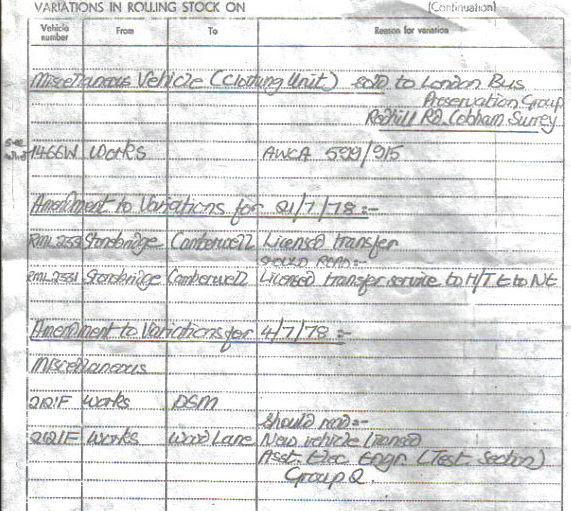 VARIATIONS IN ROLLING STOCK ON (Continuation)
Vehicle number From To Reason for variation
Miscellaneous Vehicle (Clothing Unit) sold to London Bus
Preservation Group
Redhill RD. Cobham Surrey
see
1466W Works AWCA 599/915
Amendment to Variations for 21/7/78:-
Stonebridge Camberwell Licensed transfer
should read:-
RML 2531 Stonebridge Camberwell Licensed transfer service to H/T E to NE
Amendment to Variations for 4/7/78:-
Miscellaneous
2121F Works DSM
Should read:-
2121F Works Wood Lane New vehicle licensed
Asst. Elec. Engr. (Test. Section)
Group Q.